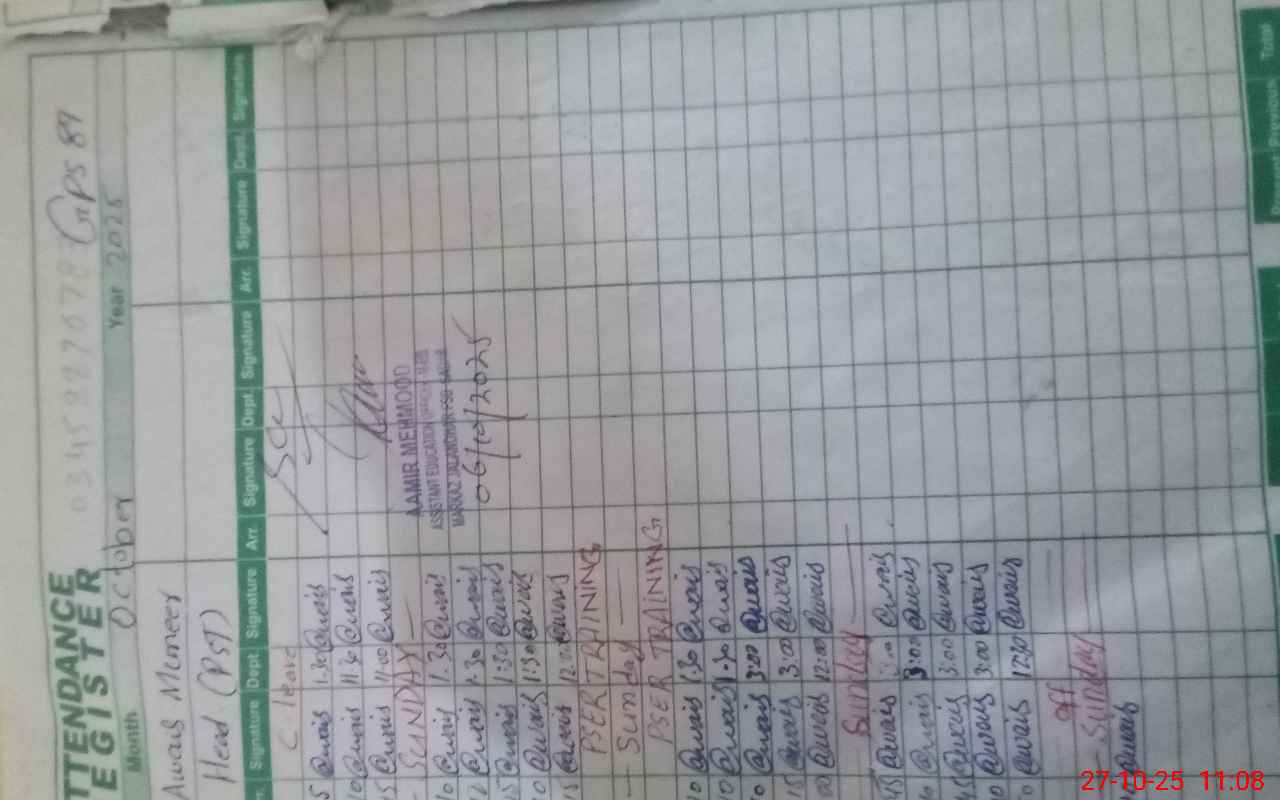 TTENDANCE
EGISTER
03458977078 GPS 89
Month October Year 2025
Awais Muneer
Head (PST)
Signature Dept. Signature Arr. Signature Dept. Signature Arr. Signature Dept. Signature
C. leave
5 Awais 1.30 Awais
10 Awais 11:30 Awais
15 Awais 11:00 Awais
SUNDAY
10 Awais 1.30 Awais
Awais 1.30 Awais
15 Awais 1:30 Awais
0 Awais 1:30 Awais
15 Awais Awais
PSER TRAINING
Sunday
PSER TRAINING
10 Awais 1.30 Awais
10 Awais 1.30 Awais
0 Awais 3:00 Awais
15 Awais 3:00 Awais
00 Awais 12:00 Awais
Sunday
45 Awais Awais
Awais 3:00 Awais
45 Awais 3:00 Awais
Awais 3:00 Awais
Awais 12:30 Awais
off
Sunday
Awais
AAMIR MEHMOOD
ASSISTANT EDUCATION OFFICER
MARKAZ
06/10/2025
Present Previous Total
27-10-25 11:08